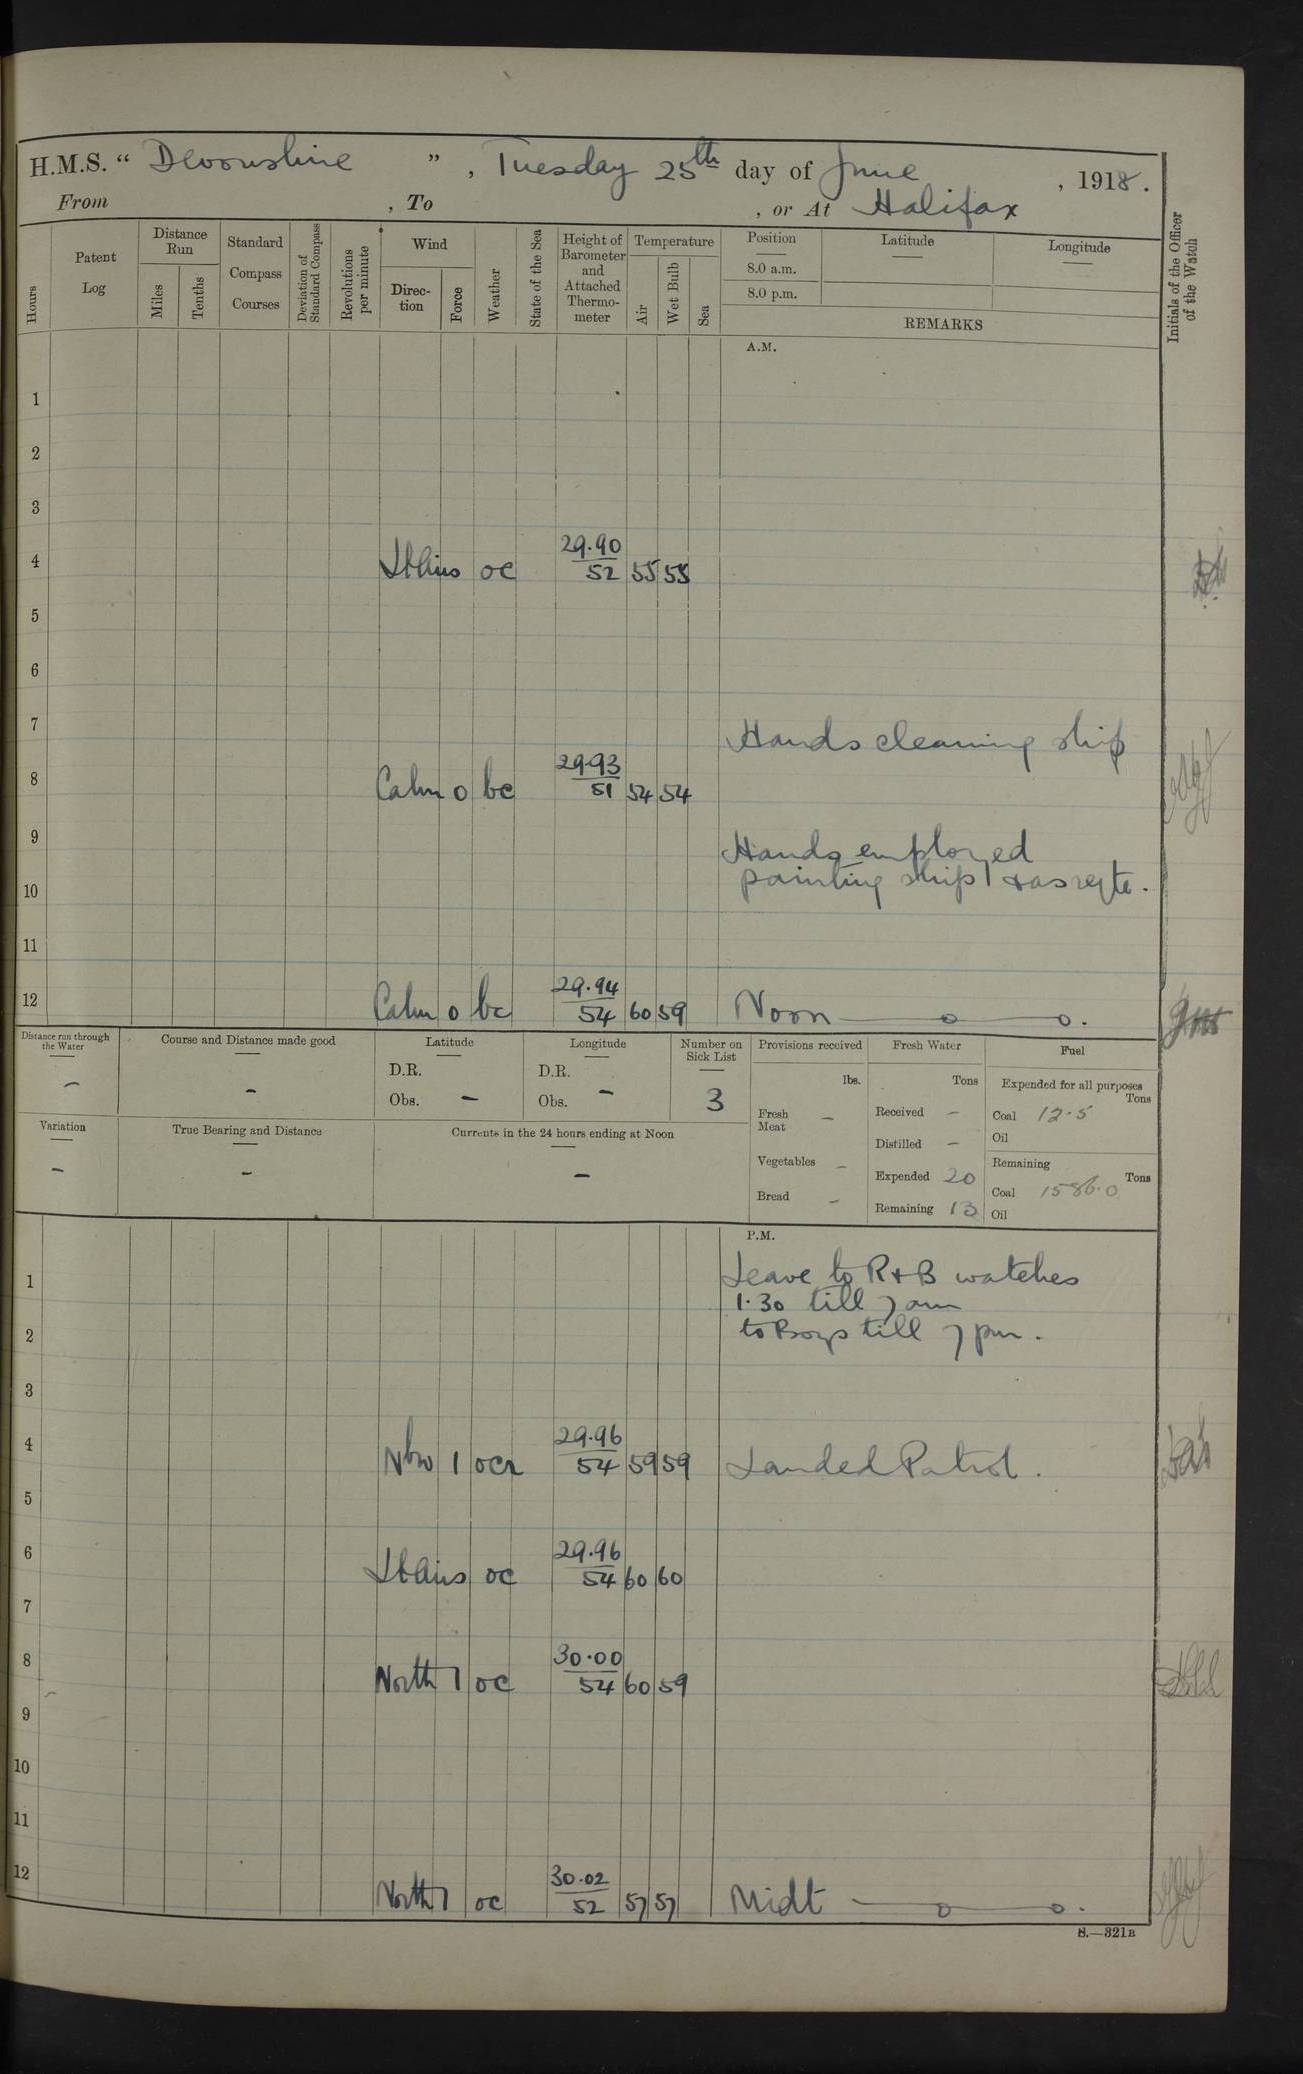 H.M.S. “ Devonshire ” , Tuesday 25th day of June , 1918.
From , To , or At Halifax
Hours
Patent Log
Distance Run
Miles
Tenths
Standard Compass Courses
Deviation of Standard Compass
Revolutions per minute
Wind
Direction
Force
Weather
State of the Sea
Height of Barometer and Attached Thermometer
Temperature
Air
Wet Bulb
Sea
Position
8.0 a.m.
8.0 p.m.
Latitude
Longitude
REMARKS
Initials of the Officer of the Watch
A.M.
1
2
3
4 Lt Airs oc 29.90 52 55 55
5
6
7 Hands cleaning ship
8 Calm 0 bc 29.93 51 54 54
9 Hands employed
10 painting ship & as reqte.
11
12 Calm 0 bc 29.94 54 60 59 Noon — o — o.
Distance run through the Water
–
Course and Distance made good
–
Latitude
D.R.
Obs. –
Longitude
D.R.
Obs. –
Number on Sick List
3
Provisions received
lbs.
Fresh Meat –
Vegetables –
Bread –
Fresh Water
Tons
Received –
Distilled –
Expended 20
Remaining 13
Fuel
Expended for all purposes
Tons
Coal 12.5
Oil
Remaining
Tons
Coal 1586.0
Oil
Variation
–
True Bearing and Distance
–
Currents in the 24 hours ending at Noon
–
P.M.
1 Leave to R & B watches
1.30 till 7 am
2 to Boys till 7 pm.
3
4 NbW 1 ocr 29.96 54 59 59 Landed Patrol.
5
6 Lt Airs oc 29.96 54 60 60
7
8 North 1 oc 30.00 54 60 59
9
10
11
12 North 1 oc 30.02 52 57 57 Midt — o — o.
S.—321B